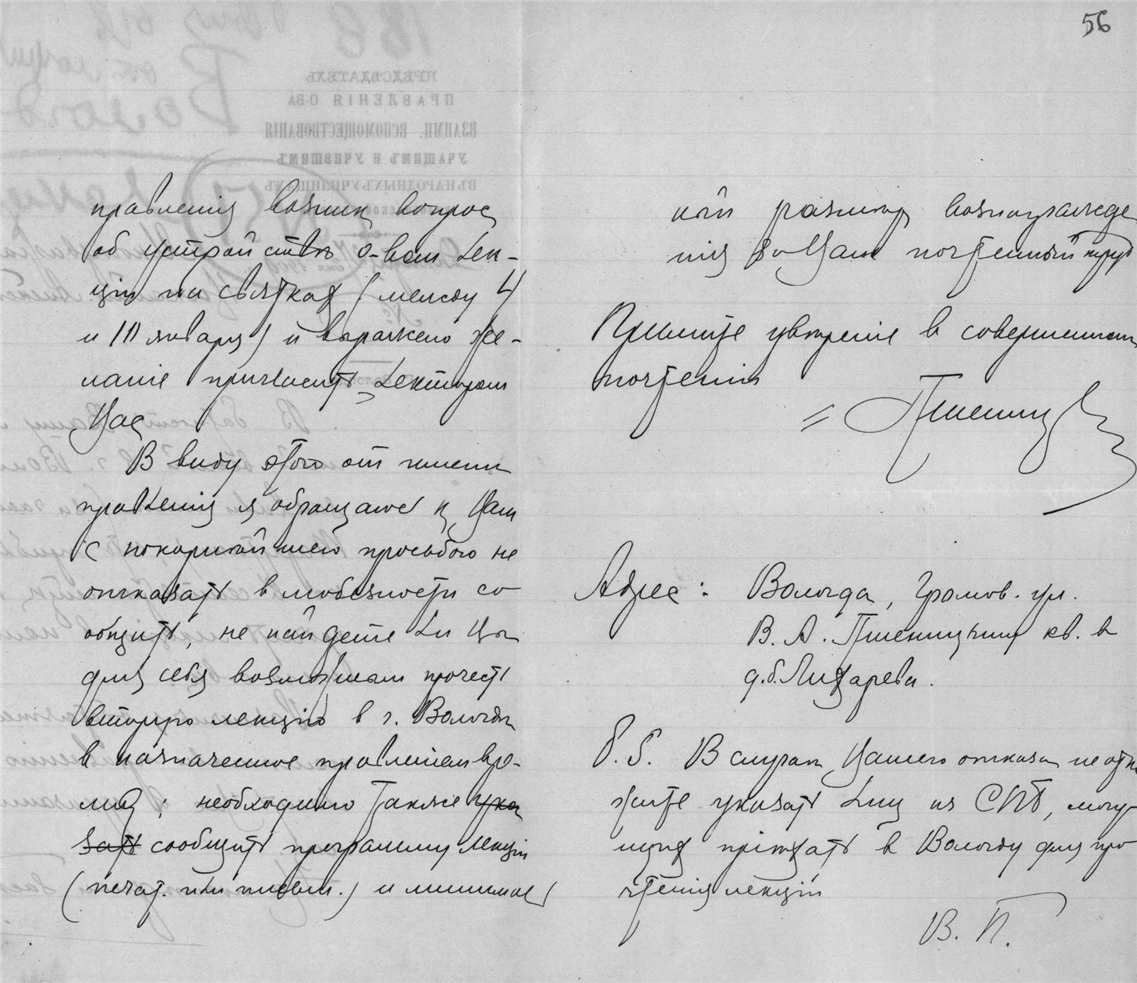 56
правленія возник вопрос
об устройстве о-вом лек-
цій на святках (между 4
и 10 января) и выражено же-
ланіе пригласить лектором
Вас
В виду этого от имени
правленія я обращаюсь к Вам
с покорнейшею просьбою не
отказать в любезности со
общить, не найдете ли Вы
для себя возможным прочесть
вторую лекцію в г. Вологде
в назначенное правленіем вре-
мя; необходимо также ука
зать сообщить программу лекціи
(печат. или письм.) и минималь
ный размер вознагражде
нія за Ваш почтенный труд
Примите уверенія в совершенном
почтеніи
Пшениц
Адрес: Вологда, Громов. ул.
В. А. Пшеницыну кв. в
д. б. Лихарева.
P. S. В случае Вашего отказа не отка
жите указать лиц из СПБ, могу-
щих пріехать в Вологду для про
чтенія лекціи
В. П.
ПРЕДСЕДАТЕЛЬ
ПРАВЛЕНІЯ О-ВА
ВЗАИМН. ВСПОМОЩЕСТВОВАНІЯ
УЧАЩИМЪ И УЧИВШИМЪ
ВЪ НАРОДНЫХЪ УЧИЛИЩАХЪ